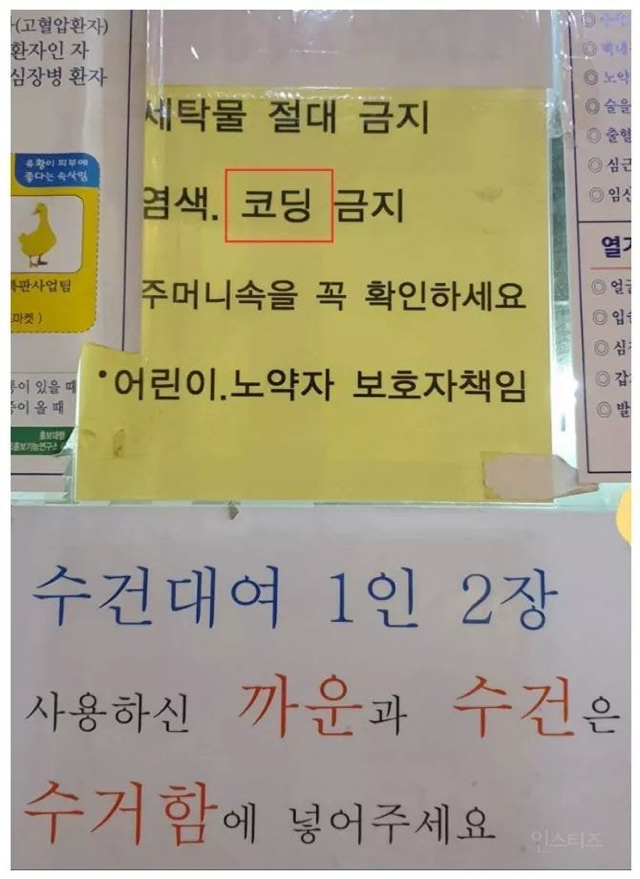 (고혈압환자)
환자인 자
심장병 환자
유황이 피부에
좋다는 속삭임
특판사업팀
마켓 )
통이 있을 때
증이 올 때
홍보대행
세탁물 절대 금지
염색. 코딩 금지
주머니속을 꼭 확인하세요
•어린이.노약자 보호자책임
◎
◎ 백내
◎ 노약
◎ 술을
◎ 출혈
◎ 심근
◎ 임신
열기
◎ 얼굴
◎ 입술
◎ 심장
◎ 갑
◎ 발
수건대여 1인 2장
사용하신 까운과 수건은
수거함에 넣어주세요
인스티즈